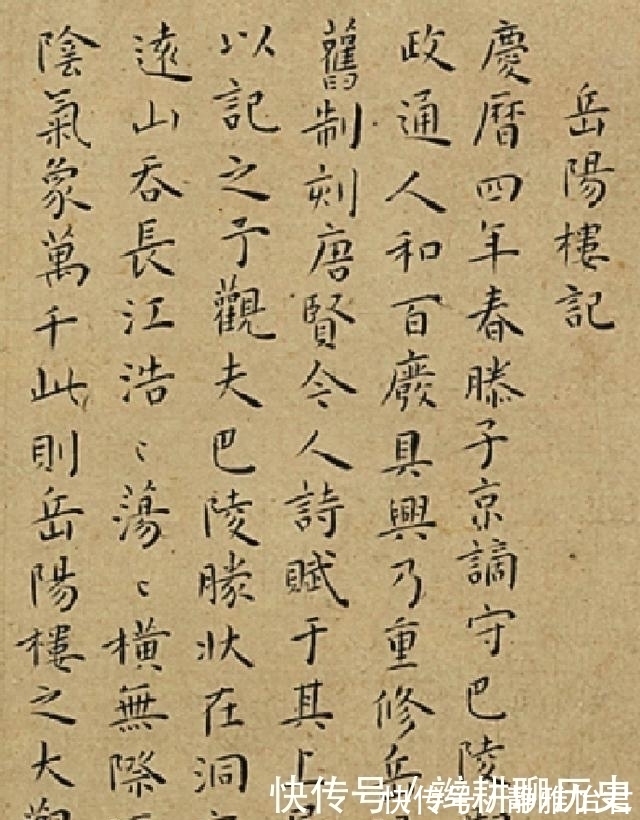 岳陽樓記
慶曆四年春滕子京謫守巴陵
政通人和百廢具興乃重修岳
舊制刻唐賢今人詩賦于其上
以記之予觀夫巴陵勝状在洞
遠山吞長江浩〻蕩〻橫無際
陰氣象萬千此則岳陽樓之大觀
快传号/辫耕聊历史
快传号